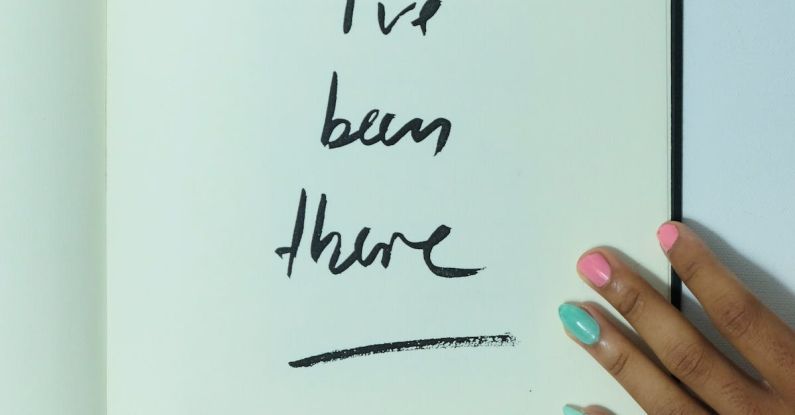 I've
been
there